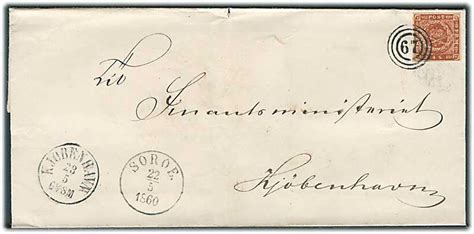 67
Til
Finantsministeriet
Kjöbenhavn
KJØBENHAVN
23
5
SOROE.
22
5
1860